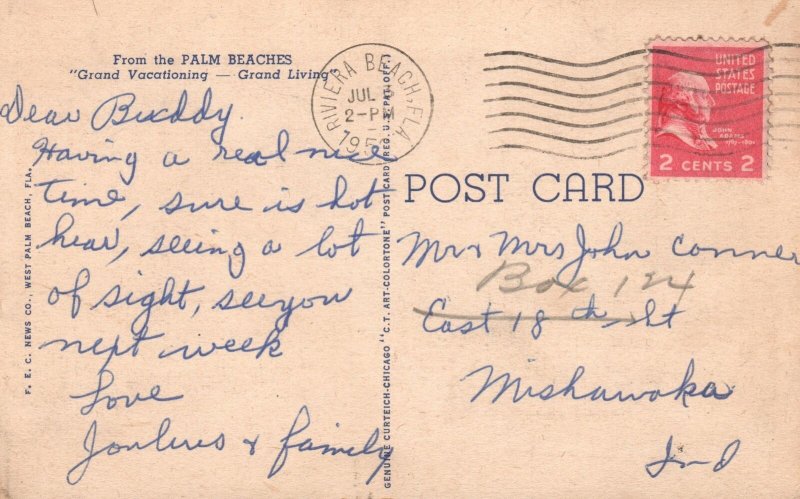 From the PALM BEACHES
"Grand Vacationing — Grand Living"
Dear Buddy.
Having a real nice
time, sure is hot
hear, seeing a lot
of sight, seeyou
next week
Love
& family
F. E. C. NEWS CO., WEST PALM BEACH, FLA.
GENUINE CURTEICH-CHICAGO "C.T. ART-COLORTONE" POST CARD (REG. U.S. PAT. OFF.)
RIVIERA BEACH, FLA.
JUL
2-PM
UNITED
STATES
POSTAGE
JOHN
ADAMS
1797-1801
2 CENTS 2
POST CARD
Mr & Mrs John Conner
Box 124
East 18th St
Mishawaka
Ind